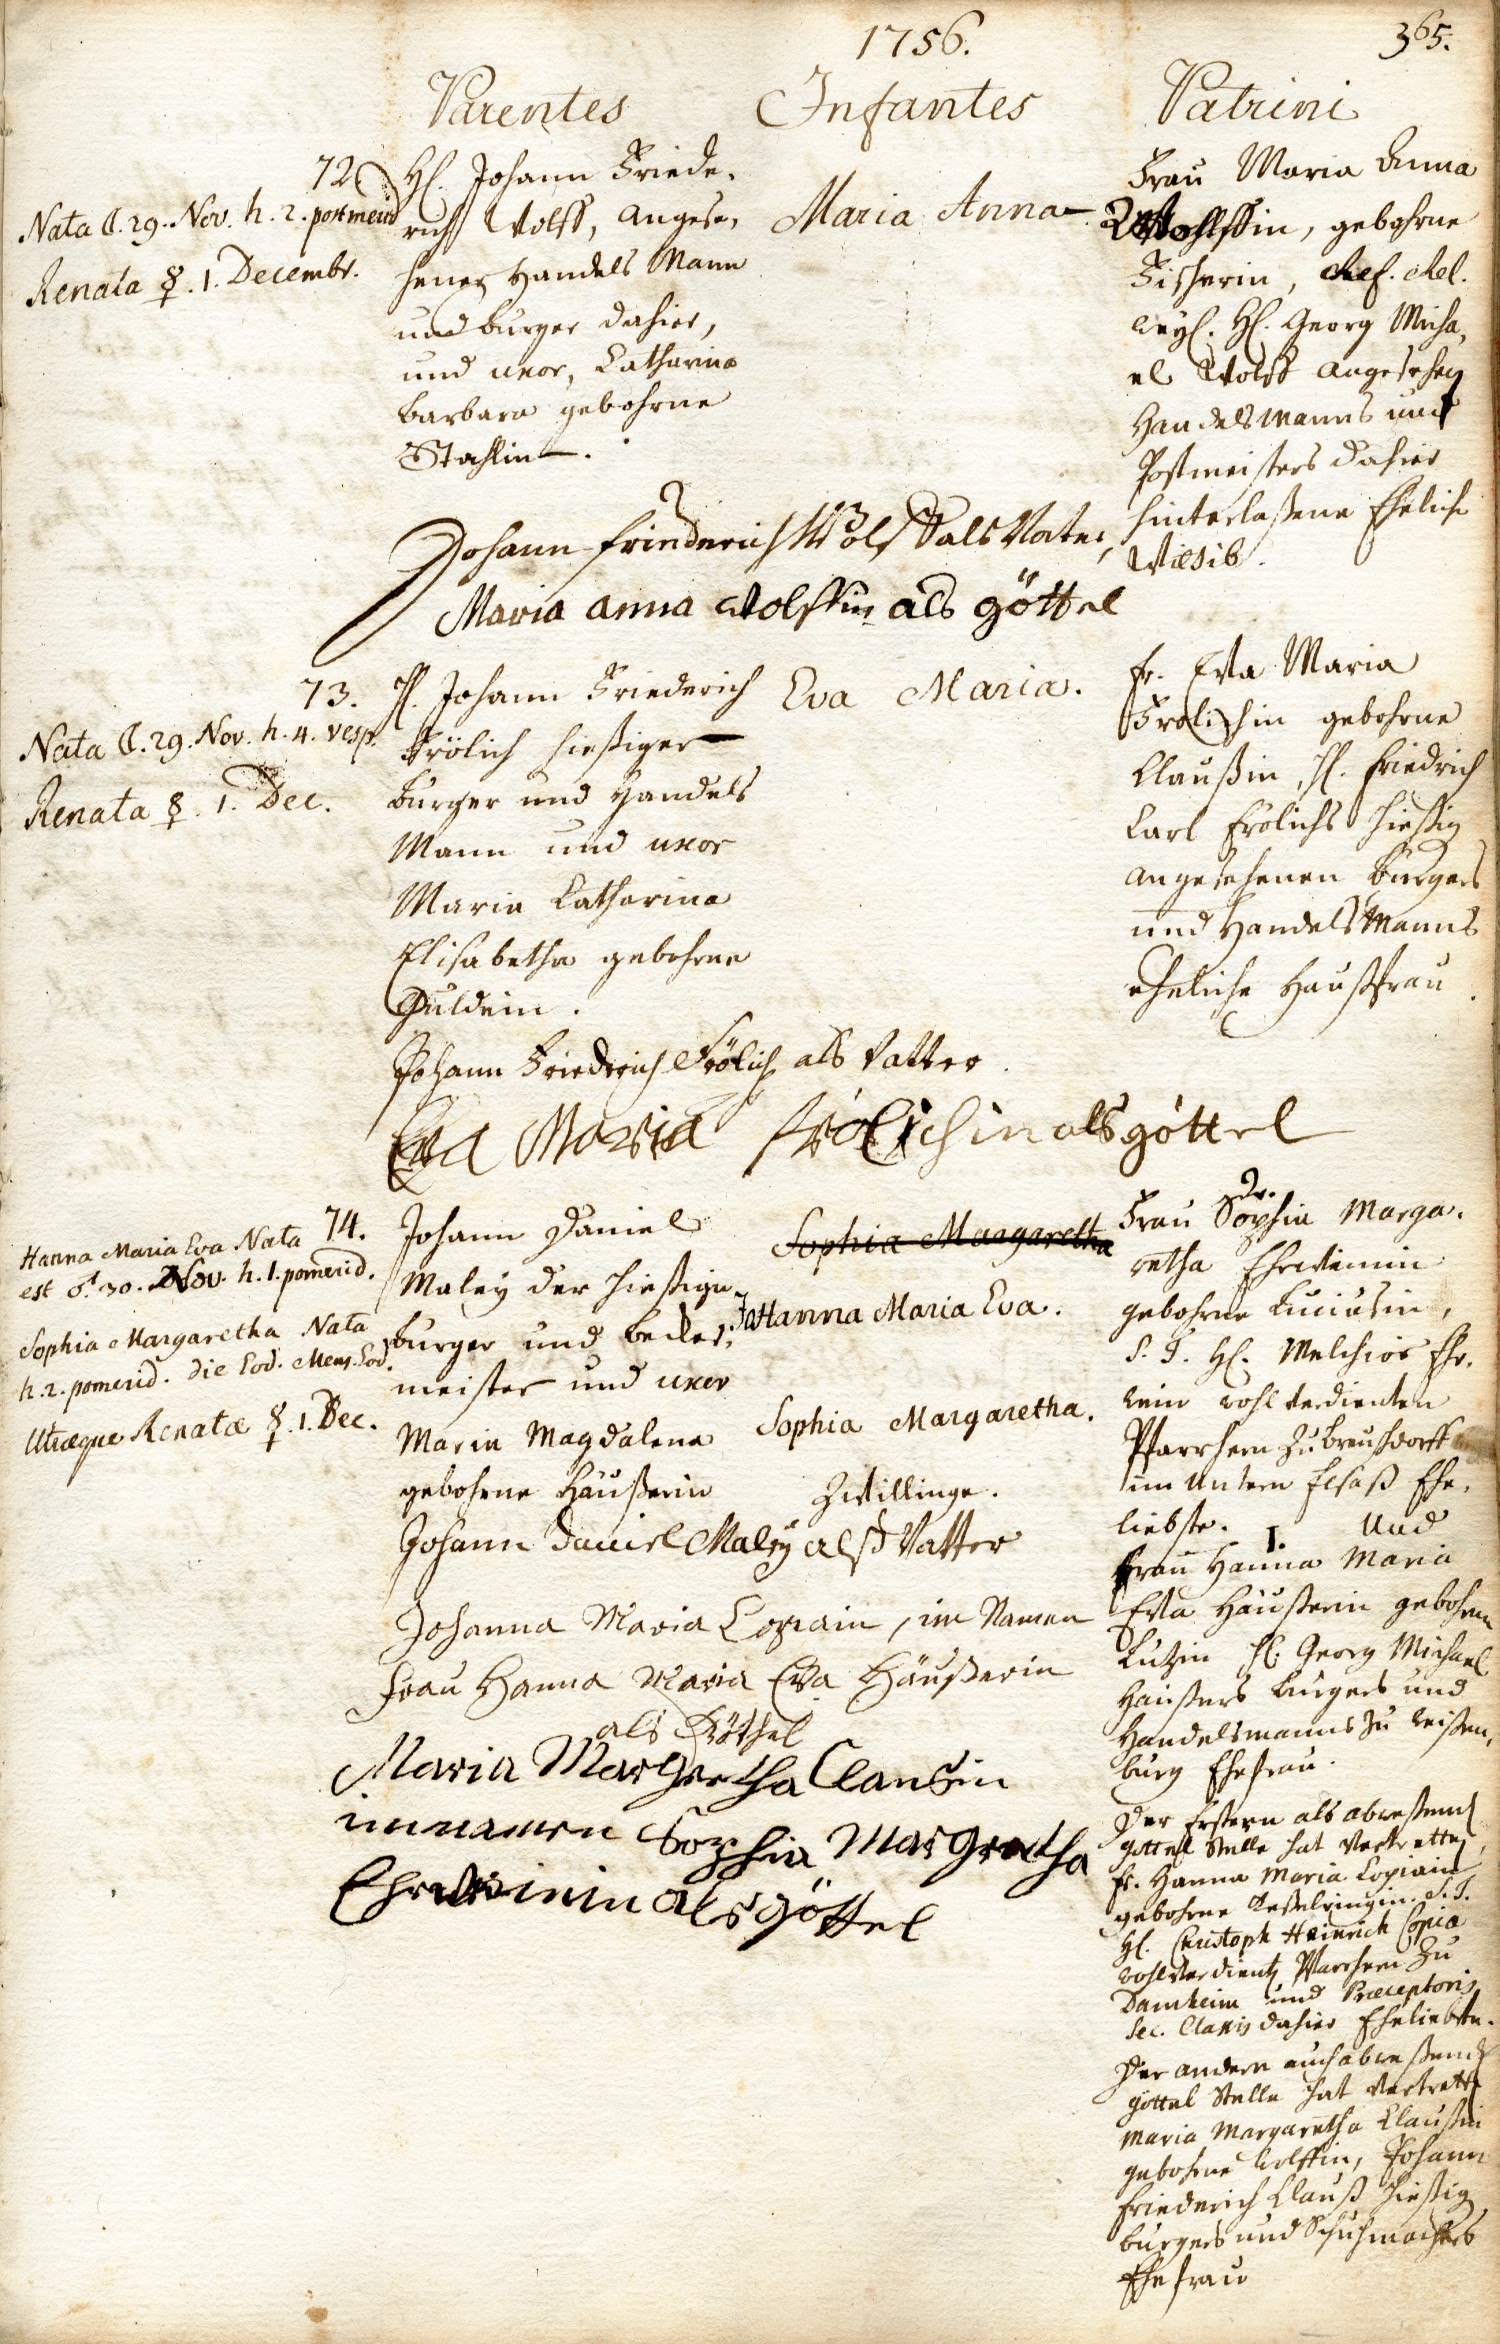 1756.
365.
Parentes
Infantes
Patrini
72
Nata ☾. 29. Nov. h. 2. postmerid
Renata ☿. 1. Decembr.
H. Johann Friede-
rich Wolff, Angese-
hener Handels Mann
und burger dahier,
und uxor, Catharina
Barbara gebohrne
Stahlin.
Maria Anna
Frau Maria Anna
Wolffin, gebohrne
Fischerin, Ref. Rel.
weyl. H. Georg Micha-
el Wolff Angesehen
Handelsmanns und
Postmeisters dahier
hinterlaßene Eheliche
Weib.
Johann Friederich Wolff als Vater,
Maria anna Wolffin als göttel
73.
Nata ☾. 29. Nov. h. 4. vesp.
Renata ☿. 1. Dec.
H. Johann Friederich
Frölich hießiger
Burger und Handels
Mann und uxor
Maria Catharina
Elisabetha gebohrne
Guldein.
Eva Maria.
fr. Eva Maria
Frölichin gebohrne
Claußin, H. Friedrich
Carl Frölichs hießig
angesehenen Burgers
und Handels Manns
eheliche Haußfrau.
Johann Friedrich Frölich als Vatter
Eva Maria frölichin als göttel
74.
Hanna Maria Eva Nata
est ♂. 30. Nov. h. 1. pomerid.
Sophia Margaretha Nata
h. 2. pomerid. die Eod. Mens. Eod.
Utræque Renatæ ☿. 1. Dec.
Johann Daniel
Maley der hießige
burger und becker-
meister und uxor
Maria Magdalena
gebohrne Häußerin
Sophia Margaretha
Hanna Maria Eva.
Sophia Margaretha.
Zwillinge.
2.
Frau Sophia Marga-
retha Ehrweinin
gebohrne Luciusin,
S. T. H. Melchior Ehr-
wein wohl verdienten
Pfarrherrn zu
im Untern Elsaß Ehe-
liebste. Und
1.
Frau Hanna Maria
Eva Häußerin gebohrne
Lutzin H. Georg Michael
Häußers burgers und
Handelsmanns zu Weißen-
burg Ehefrau.
Der Erstern als abweßend
göttel Stelle hat vertretten
fr. Hanna Maria Copiain
gebohrne S. T.
H. Christoph Heinrich Copia
wohlverdient Pfarrherr zu
Damheim und Præceptoris
Sec. Classis dahier Eheliebste.
Der andern auch abweßend
göttel Stelle hat vertretten
Maria Margaretha Claußin
gebohrne Wolffin, Johann
Friederich Clauß hießig
burgers und Schuhmachers
Ehefrau
Johann Daniel Maley alß Vatter
Johanna Maria Copiain, im Namen
Frau Hanna Maria Eva Häußerin
als Göthel
Maria Margretha Clausin
im namen Sophia Margretha
Ehrweinin als göttel